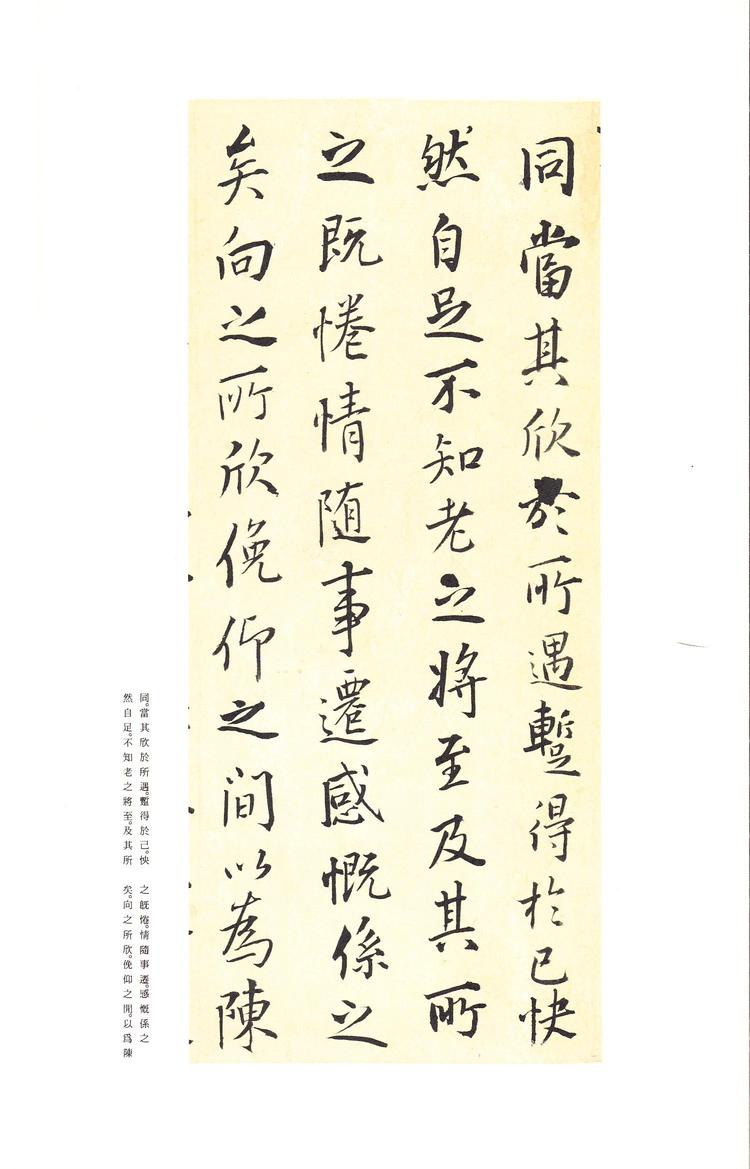 同當其欣於所遇蹔得於己快
然自足不知老之將至及其所
之既惓情随事遷感慨係之
矣向之所欣俛仰之間以為陳
同。當其欣於所遇。蹔得於己。怏
然自足。不知老之將至。及其所
之旣惓。情隨事遷。感慨係之
矣。向之所欣。俛仰之閒。以爲陳